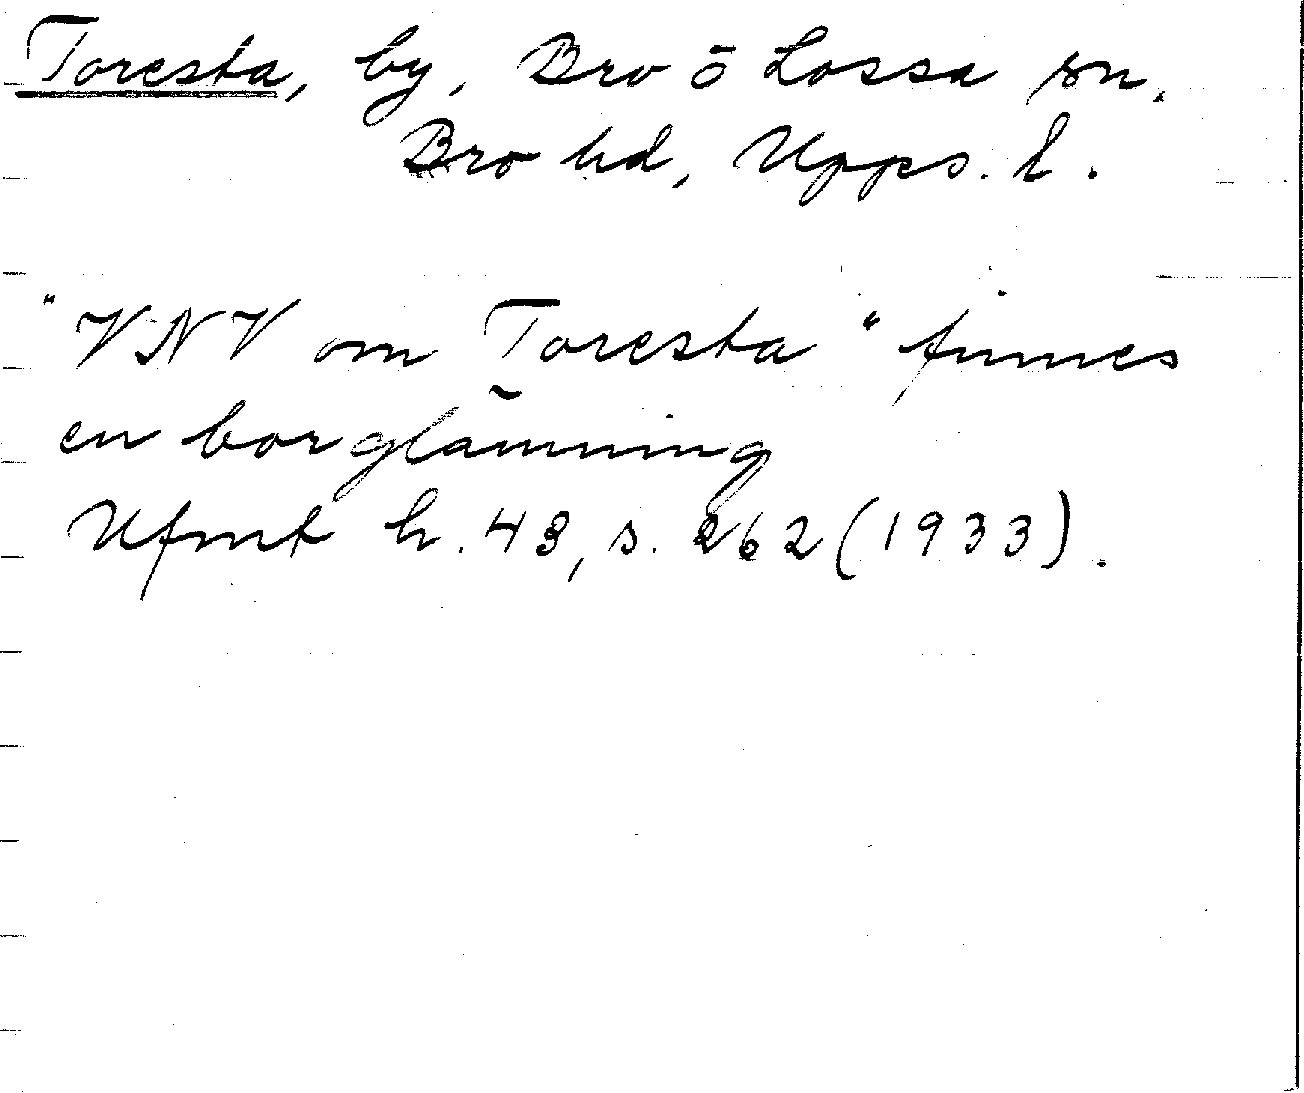 Toresta, by, Bro ō Lossa sn.
Bro hd, Upps. l.
"VNV om Toresta" finnes
en borglämning
Ufmt h. 43, s. 262 (1933).